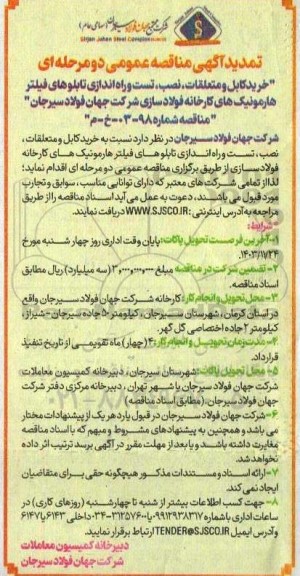 شرکت مجتمع جهان فولاد سیرجان (سهامی عام)
Sirjan Jahan Steel Complex
تمدید آگهی مناقصه عمومی دو مرحله ای
"خرید کابل و متعلقات، نصب، تست و راه اندازی تابلوهای فیلتر
هارمونیک های کارخانه فولادسازی شرکت جهان فولاد سیرجان"
"مناقصه شماره ۹۸-۰۳-خ-م"
شرکت جهان فولاد سیرجان در نظر دارد نسبت به خرید کابل و متعلقات،
نصب، تست و راه اندازی تابلوهای فیلتر هارمونیک های کارخانه
فولادسازی از طریق برگزاری مناقصه عمومی دو مرحله ای اقدام نماید؛
لذا از تمامی شرکت های معتبر که دارای توانایی مناسب، سوابق و تجارب
مورد قبول می باشند، دعوت به عمل می آید اسناد مناقصه را از طریق
مراجعه به آدرس اینترنتی: WWW.SJSCO.IR دریافت نمایند.
شرایط:
۱-آخرین فرصت تحویل پاکات: پایان وقت اداری روز چهارشنبه مورخ
۱۴۰۳/۱۱/۲۴.
۲-تضمین شرکت در مناقصه مبلغ ۳,۰۰۰,۰۰۰,۰۰۰ (سه میلیارد) ریال مطابق
اسناد مناقصه.
۳-محل تحویل و انجام کار: کارخانه شرکت جهان فولاد سیرجان واقع
در استان کرمان، شهرستان سیرجان، کیلومتر ۵۰ جاده سیرجان-شیراز،
کیلومتر ۲ جاده اختصاصی گل گهر.
۴-مدت زمان تحویل و انجام کار: ۴ (چهار) ماه تقویمی از تاریخ تنفیذ
قرارداد.
۵-محل تحویل پاکات: شهرستان سیرجان، دبیرخانه کمیسیون معاملات
شرکت جهان فولاد سیرجان یا شهر تهران، دبیرخانه مرکزی دفتر شرکت
جهان فولاد سیرجان (مطابق اسناد مناقصه)
۶-شرکت جهان فولاد سیرجان در قبول یا رد هر یک از پیشنهادات مختار
می باشد و همچنین به پیشنهادهای مشروط و مبهم که با اسناد مناقصه
مغایرت داشته باشد و یا بعد از مهلت مقرر در آگهی برسد ترتیب اثر داده
نخواهد شد.
۷-ارائه اسناد و مستندات مذکور هیچگونه حقی برای متقاضیان
ایجاد نمی کند.
۸-جهت کسب اطلاعات بیشتر از شنبه تا چهارشنبه (روزهای کاری) در
ساعات اداری با شماره ۰۹۹۱۲۹۳۸۳۱۷ یا ۰۳۴-۳۱۲۵۷۶۰۰ داخلی ۶۱۴۳ یا ۶۱۴۷
و آدرس ایمیل TENDER@SJSCO.IR ارتباط برقرار نمایید.
دبیرخانه کمیسیون معاملات
شرکت جهان فولاد سیرجان